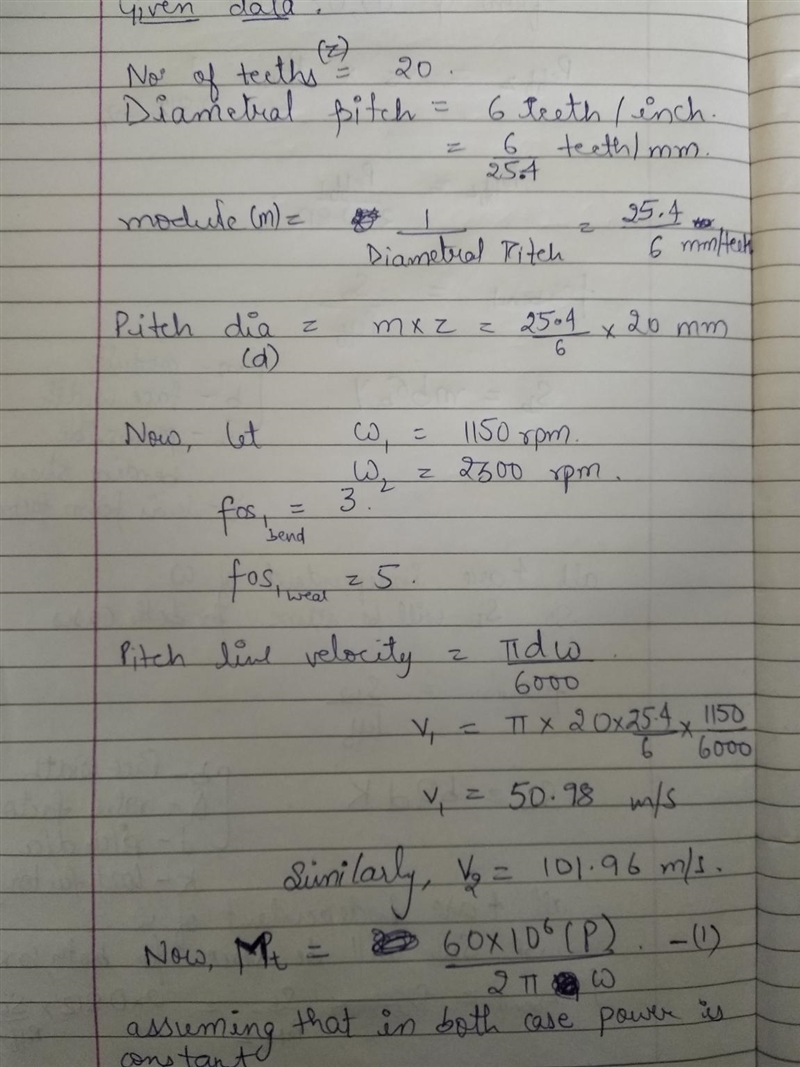 Given data.
No. of teeths (z) = 20.
Diametral pitch = 6 teeth/inch.
= 6/25.4 teeth/mm.
module (m) = 1/Diametral Pitch = 25.4/6 mm/teeth
Pitch dia (d) = m x z = 25.4/6 x 20 mm
Now, let ω1 = 1150 rpm.
ω2 = 2300 rpm.
fos1 bend = 3.
fos1 wear = 5.
Pitch line velocity = πdω/6000
V1 = π x 20 x 25.4/6 x 1150/6000
V1 = 50.98 m/s
Similarly, V2 = 101.96 m/s.
Now, Mt = 60x10⁶(P)/2πω. -(1)
assuming that in both case power is
constant